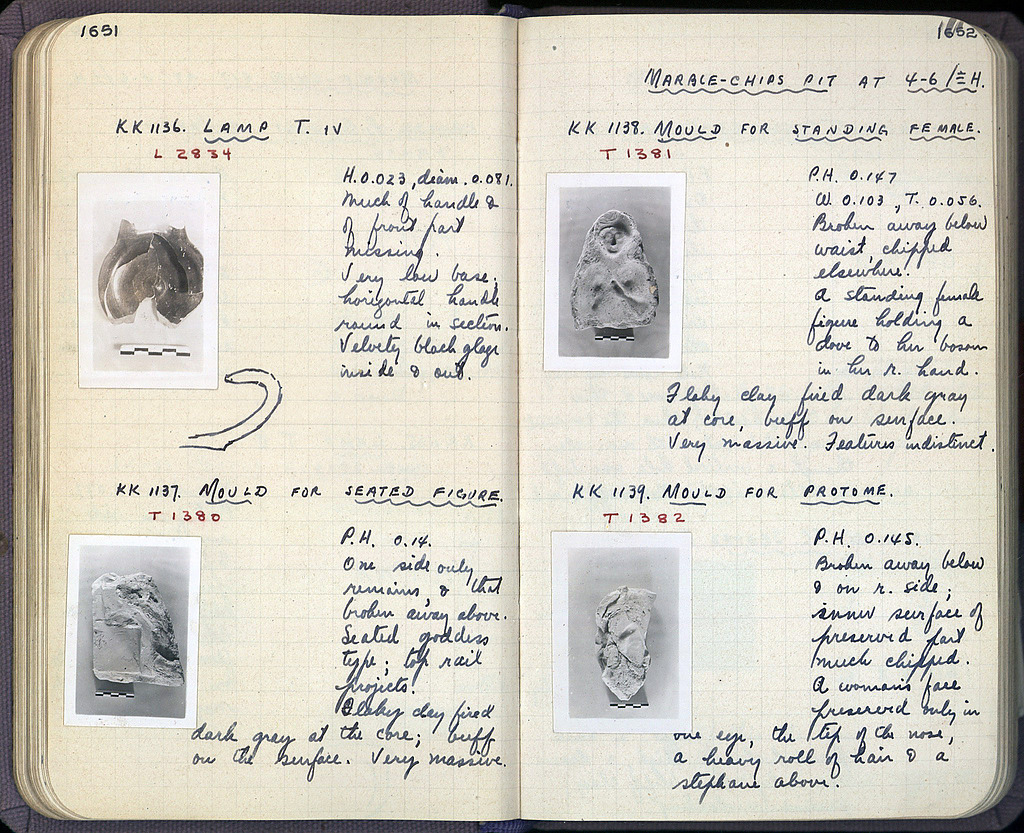 1651
KK 1136. LAMP T. IV
L 2834
H. 0.023, diam. 0.081.
Much of handle &
of front part
missing.
Very low base,
horizontal handle
round in section.
Velvety black glaze
inside & out.
KK 1137. MOULD FOR SEATED FIGURE.
T 1380
P.H. 0.14.
One side only
remains, & that
broken away above.
Seated goddess
type; top rail
projects.
Flaky clay fired
dark gray at the core; buff
on the surface. Very massive.
1652
MARBLE-CHIPS PIT AT 4-6/ΞH.
KK 1138. MOULD FOR STANDING FEMALE.
T 1381
P.H. 0.147
W. 0.103, T. 0.056.
Broken away below
waist, chipped
elsewhere.
A standing female
figure holding a
dove to her bosom
in her r. hand.
Flaky clay fired dark gray
at core, buff on surface.
Very massive. Features indistinct.
KK 1139. MOULD FOR PROTOME.
T 1382
P.H. 0.145.
Broken away below
& on r. side;
inner surface of
preserved part
much chipped.
A woman's face
preserved only in
one eye, the tip of the nose,
a heavy roll of hair & a
stephane above.